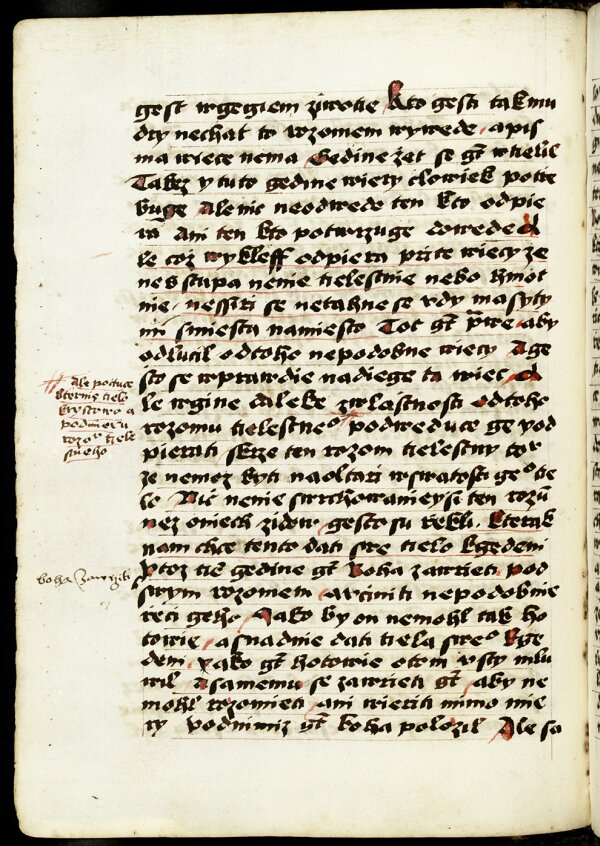 gest w gegiem ziwotie Kto gesti tak mu
dry nechat to rozomem wywede a pis
ma wiece nema Gedine zet se gt w tiele
Takez y tuto gedine wiery clowiek potre
buge Ale nic neodwede ten kto odpie
ra Ani ten kto potwrzuge dowede A
le coz wykleff odpiera prite wiecy ze
nesstupa nenie tielestnie nebo hmot
nie nessiri se netahne se wdy ma syty
mi s miesta na miesto Tot gt prwe aby
odlucil od toho nepodobne wiecy A ge
sto se w prawdie nadiege ta wiec A
le w gine daleke zwlastnosti od toho
rozomu tielestneo podweduce ge pod
pierati skrze ten rozom tielestny
ze nemoz byti na oltari w swatosti geo tie
lo Nic nenie swrchowaniey si ten rozu
nez oniech zidow gesto su rekli Kterak
nam chce tento dati swe tielo k gedeni
Ptoz tiem gedine gt Boha zawrieti pod
swym rozomem a vciniti nepodobnie
reci geho Jako by on nemohl tak ho
towie a snadnie dati tiela sweo k ge
deni yako gt hotowie o tom vsty mlu
wil A samemu se zawrieti gt aby ne
mohl rozomieti ani wieriti mimo mie
ry pod nimiz gt boha polozil Ale sa
Ale poctuce
kternie tielo
krystowo a
podmieru
rozou tiele
stneho
boha zawrieti